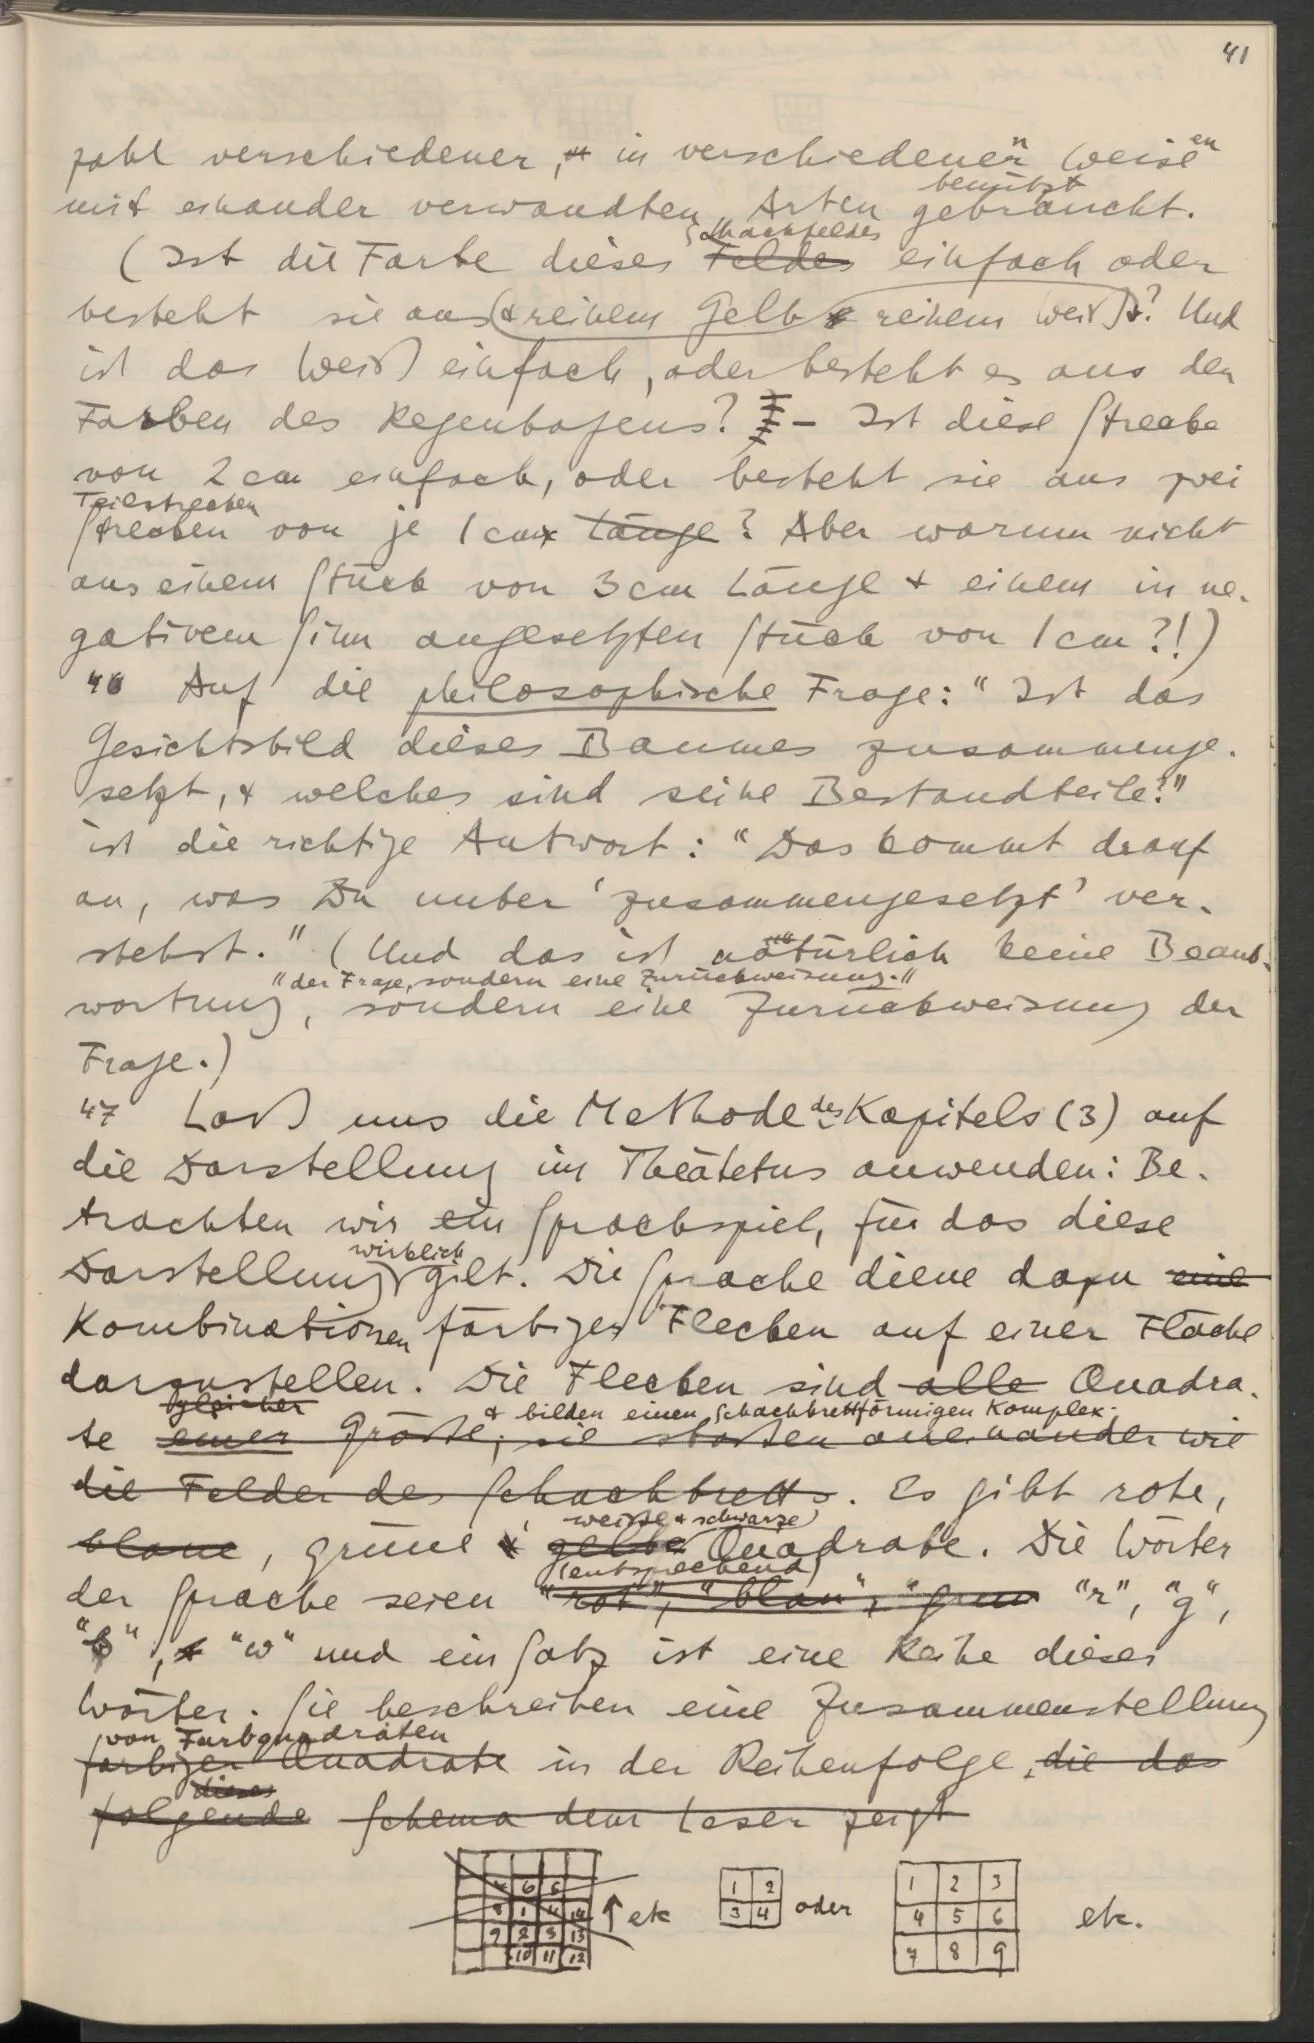 41
zahl verschiedener, & in verschiedenen Weisen
mit einander verwandten, Arten gebraucht.
benützt
(Ist die Farbe dieses Feldes einfach oder
Schachfeldes
besteht sie aus reinem Gelb & reinem Weiß? Und
ist das Weiß einfach, oder besteht es aus den
Farben des Regenbogens? – Ist diese Strecke
von 2 cm einfach, oder besteht sie aus zwei
Teilstrecken
Strecken von je 1 cm Länge? Aber warum nicht
aus einem Stück von 3 cm Länge & einem in ne-
gativem Sinn angesetzten Stück von 1 cm?!)
46 Auf die philosophische Frage: "Ist das
Gesichtsbild dieses Baumes zusammenge-
setzt, & welches sind seine Bestandteile?"
ist die richtige Antwort: "Das kommt drauf
an, was Du unter 'zusammengesetzt' ver-
stehst." (Und das ist natürlich keine Beant-
"der Frage, sondern eine Zurückweisung."
wortung, sondern eine Zurückweisung der
Frage.)
47 Laß uns die Methode des Kapitels (3) auf
die Darstellung im Theätetus anwenden: Be-
trachten wir ein Sprachspiel, für das diese
wirklich
Darstellung gilt. Die Sprache diene dazu eine
Kombinationen färbiger Flecken auf einer Fläche
darzustellen. Die Flecken sind alle Quadra-
gleicher & bilden einen schachbrettförmigen Komplex.
te einer Größe; sie stoßen aneinander wie
die Felder des Schachbretts. Es gibt rote,
weiße & schwarze
blaue, grüne & gelbe Quadrate. Die Wörter
(entsprechend)
der Sprache seien "rot", "blau", "grün "r", "g",
"s", & "w" und ein Satz ist eine Reihe dieser
Wörter. Sie beschreiben eine Zusammenstellung
von Farbquadraten
farbiger Quadrate in der Reihenfolge, die das
dieses
folgende Schema dem Leser zeigt
7 6 5
8 1 4 14
9 2 3 13
10 11 12
etc
1 2
3 4
oder
1 2 3
4 5 6
7 8 9
etc.